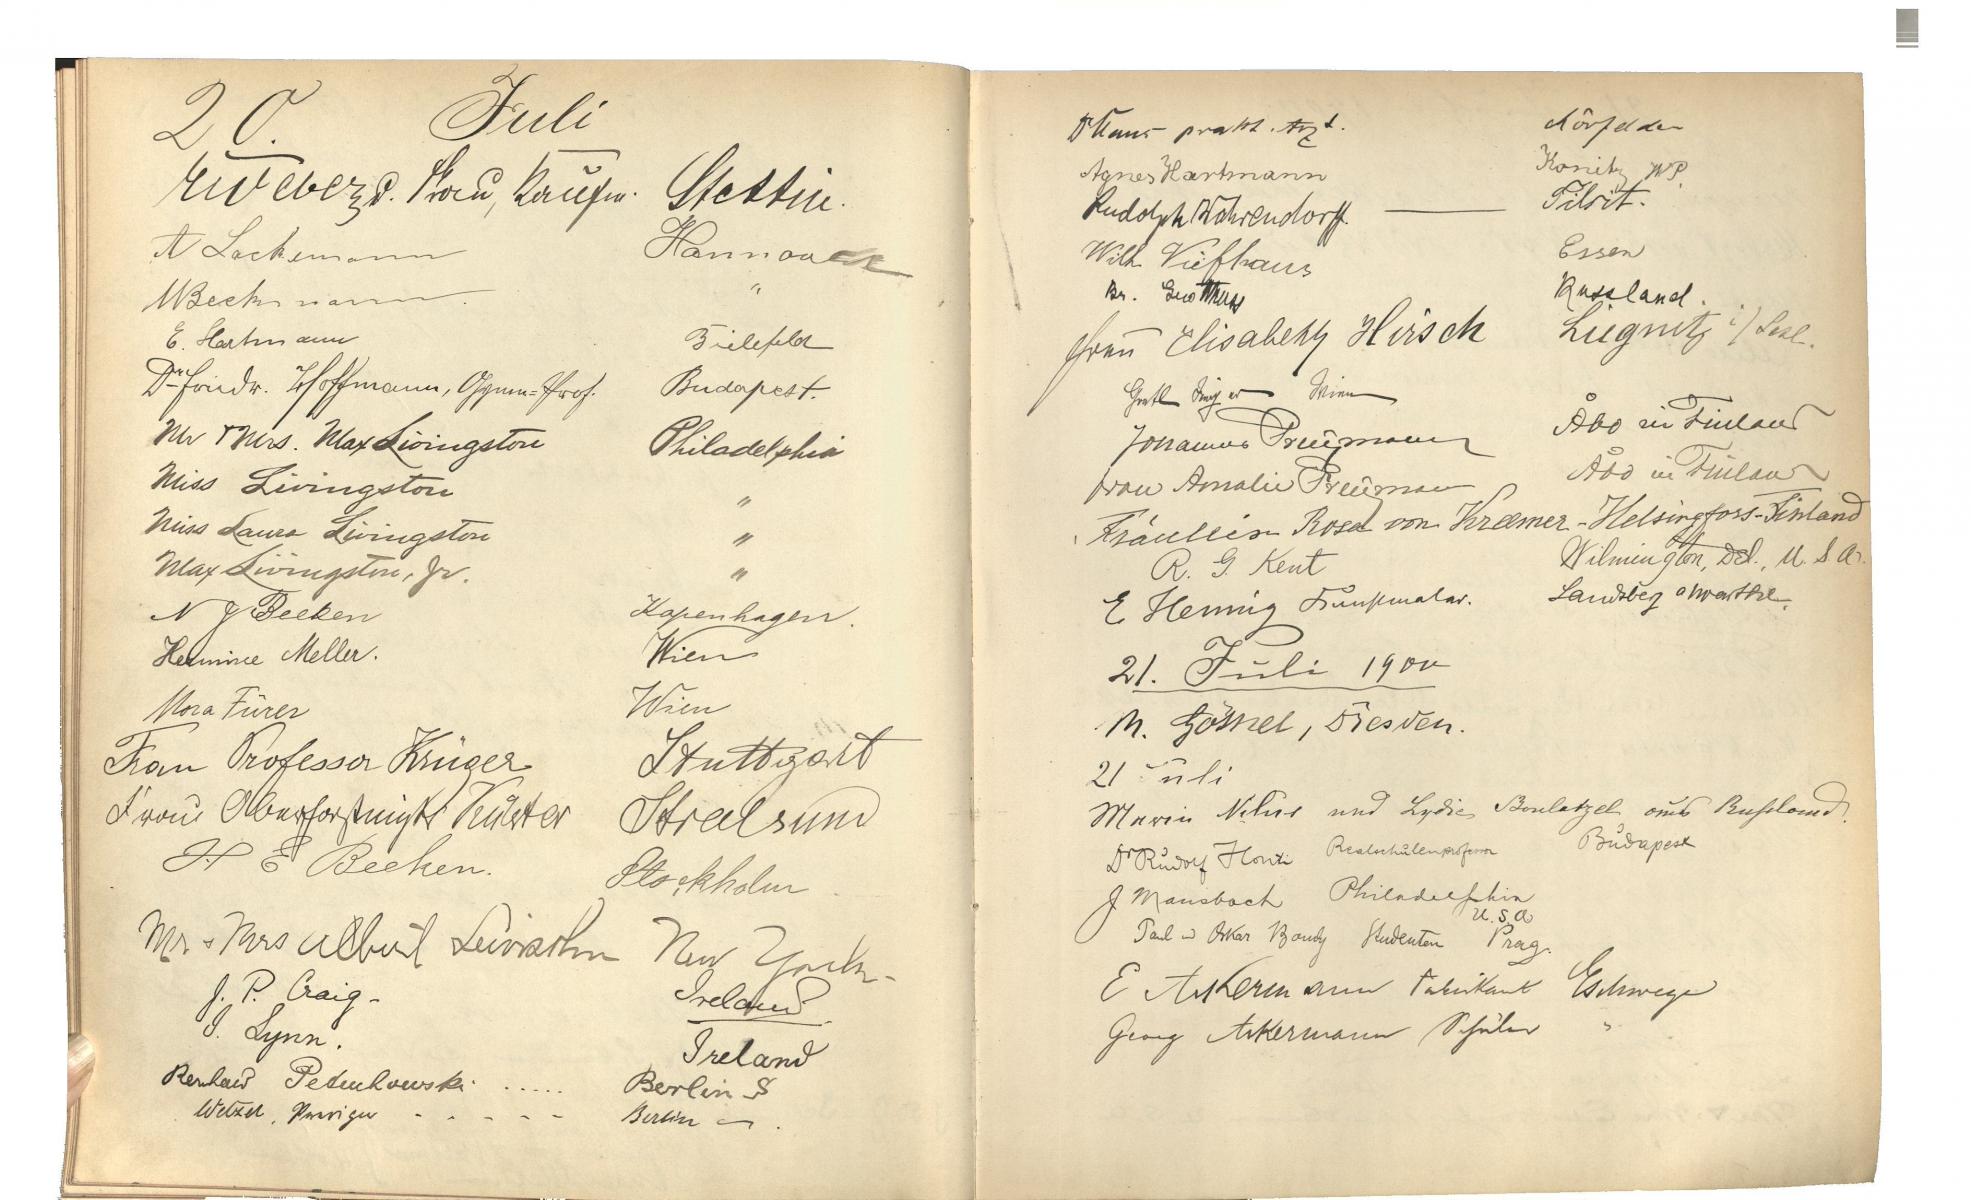 20. Juli
Weber u. Frau, Kaufm. Stettin.
A Lackemann Hannover
W Beckmann "
E. Hartmann Bielefeld
Dr Friedr. Hoffmann, Gymn=Prof. Budapest.
Mr + Mrs. Max Livingston Philadelphia
Miss Livingston "
Miss Laura Livingston "
Max Livingston, Jr. "
N J Beeken Kopenhagen.
Hermine Meller. Wien
Fürer Wien
Frau Professor Krüger Stuttgart
Frau Stralsund
H E Beeken. Stockholm
Mr & Mrs Albert Lewisohn New York
J. P. Craig Ireland
Lynn. Ireland
Berlin S
Wetzel, Berlin
Dr prakt. Arzt.
Agnes Hartmann Konitz WP.
Rudolph Wahrendorff. Tilsit.
Wilh Viefhaus Essen
Russland.
Frau Elisabeth Hirsch Liegnitz i/ Schl.
Gretl Singer Wien
Johannes Åbo in Finland
Frau Amalie Åbo in Finland
Fräulein Rosa von Kraemer - Helsingfors - Finland
R. G. Kent Wilmington, Del., U. S. A.
E Hennig Kunstmaler. Landsberg a Warthe.
21. Juli 1900
M. Dresden.
21 Juli
und Lydie aus Russland.
Dr Rudolf Honti Realschulenprofessor Budapest
J Mansbach Philadelphia
U. S. A
Paul u Oskar Bondy Studenten Prag.
E Ackermann Fabrikant Eschwege
Georg Ackermann Schüler "